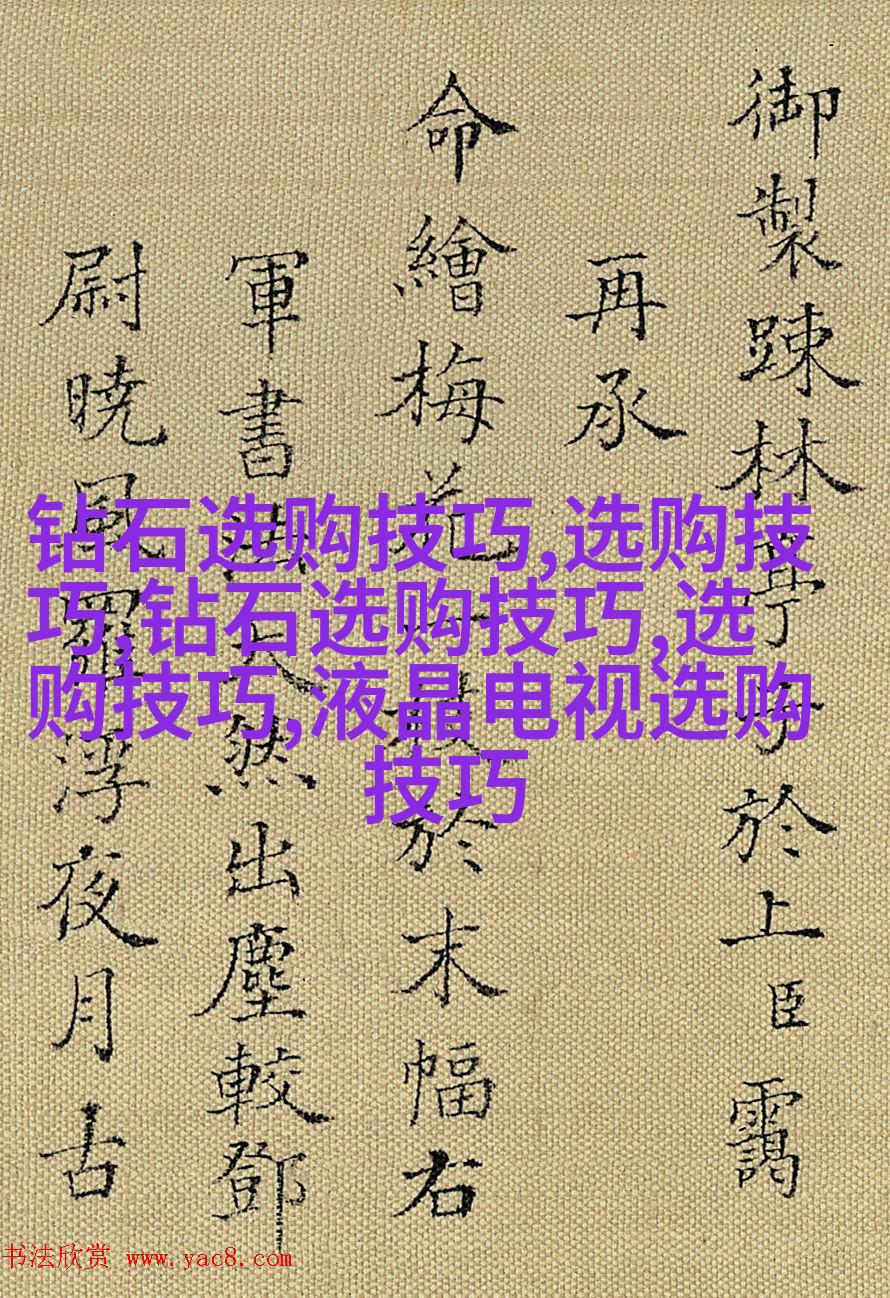 御製踈林亭子於上臣靄
再承
命繪梅花一於末幅右
軍書天然出塵較鄧
尉曉風羅浮夜月古
钻石选购技巧,选购技
巧,钻石选购技巧,选
购技巧,液晶电视选购
技巧
书法欣赏 www.yac8.com